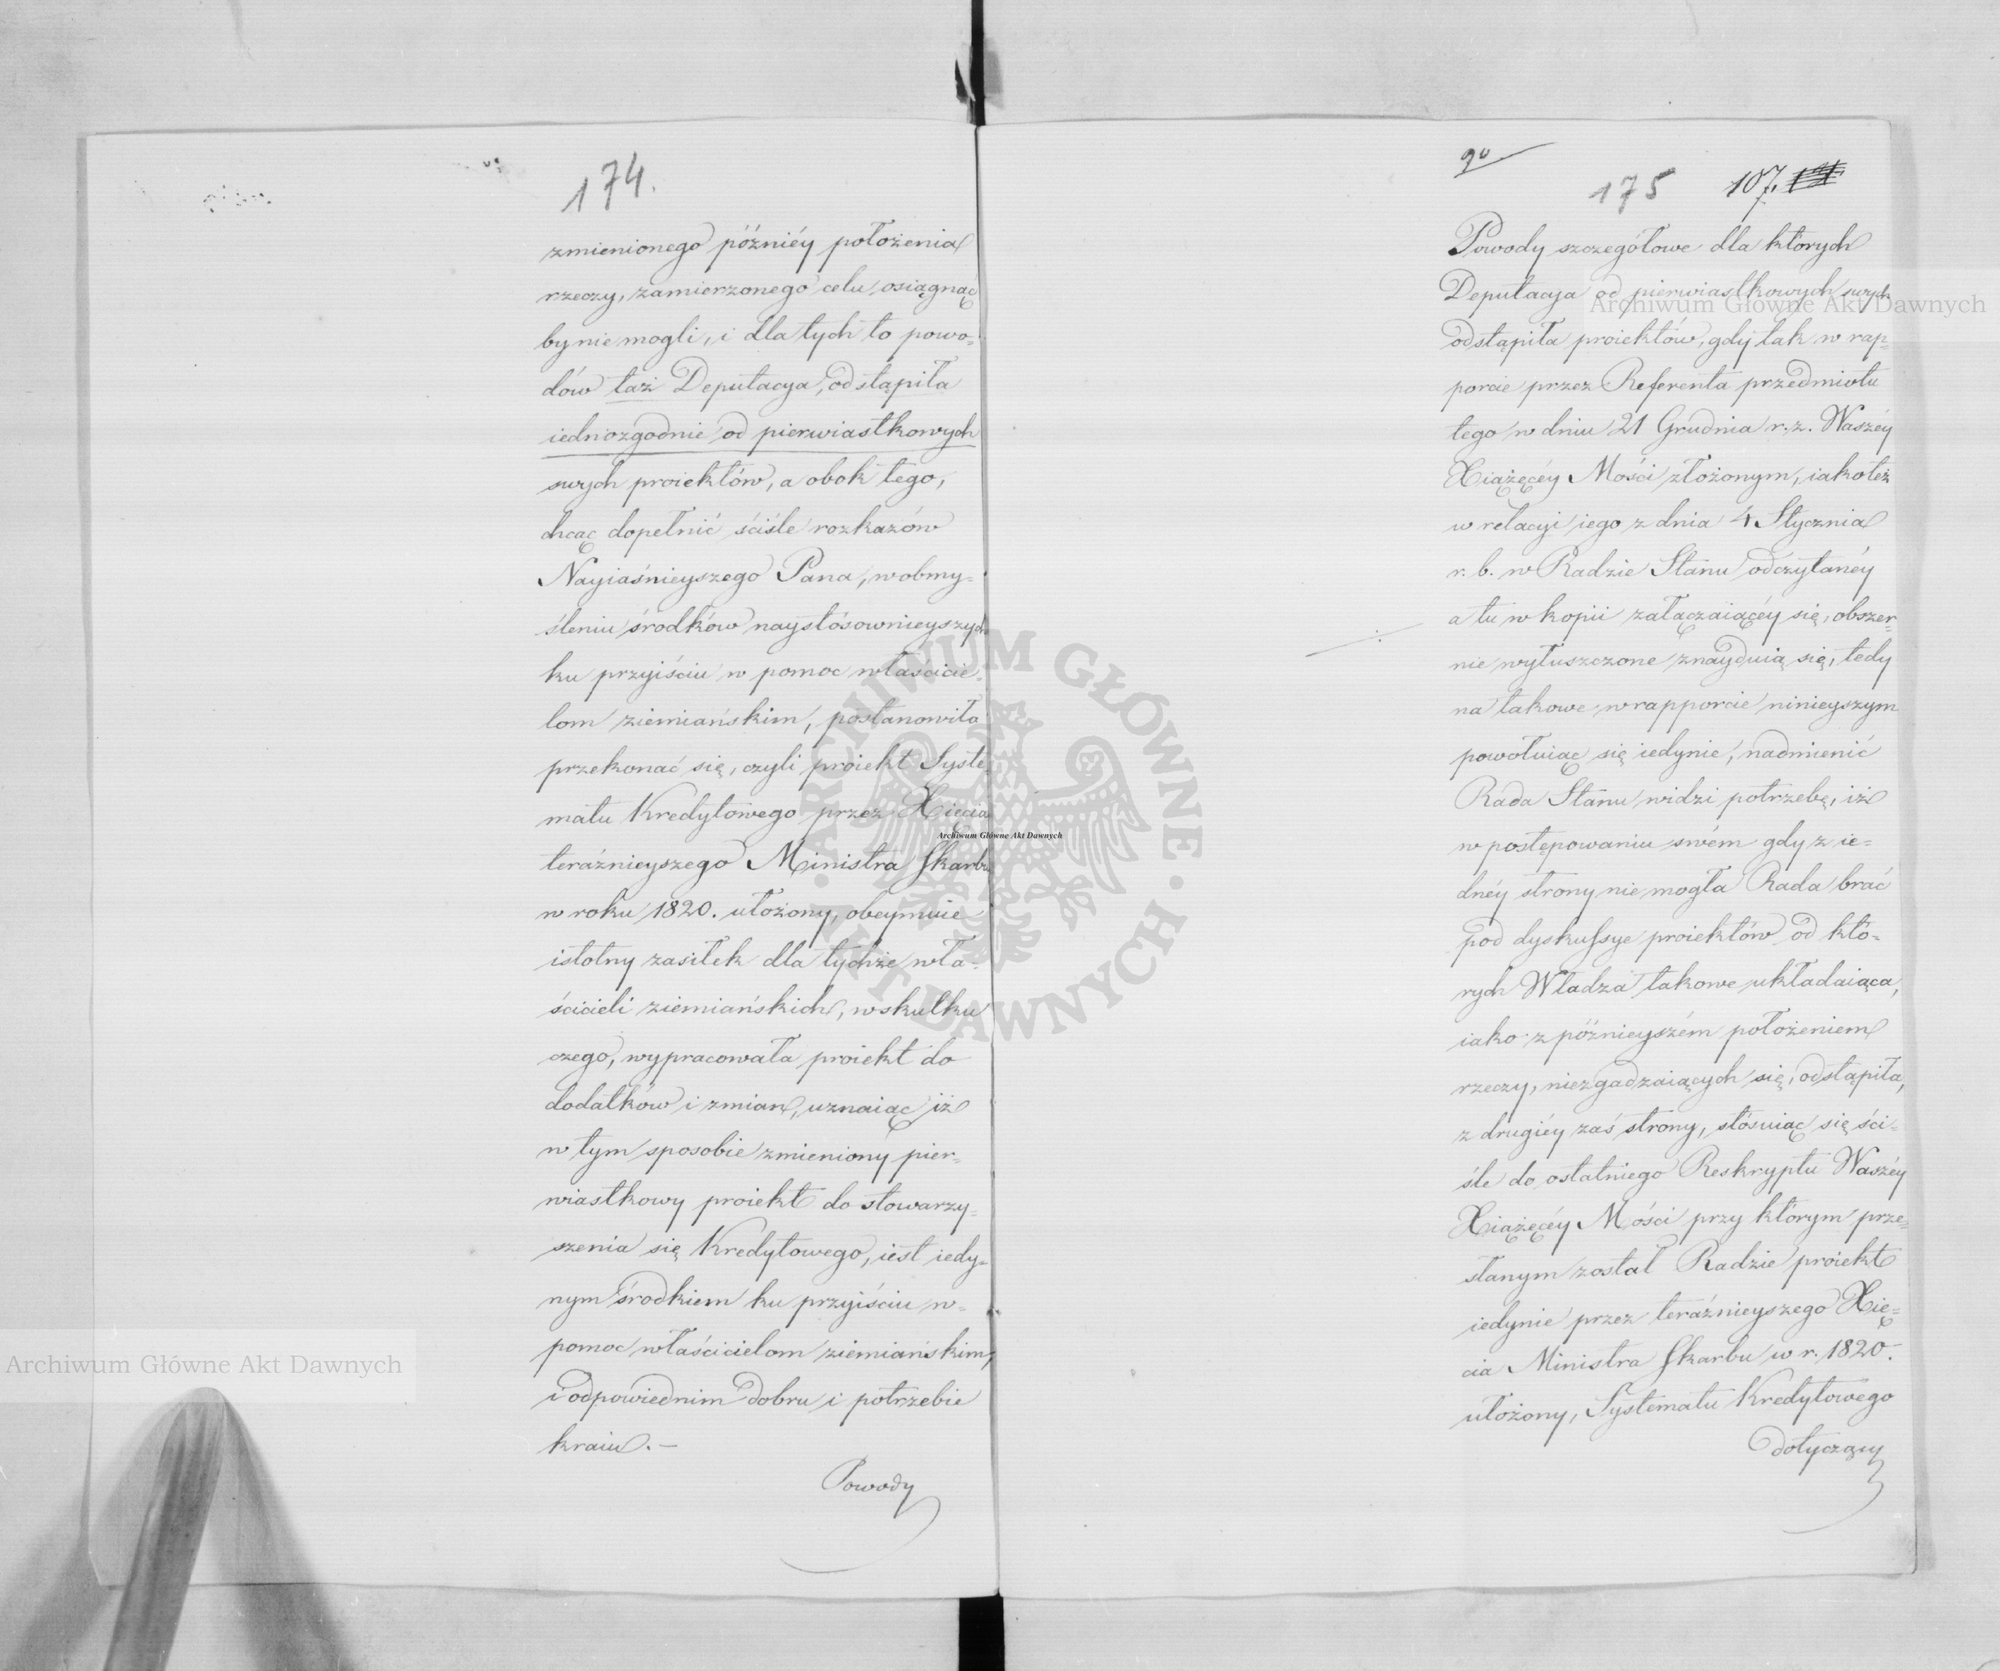 174.
zmienionego późniéy położenia
rzeczy, zamierzonego celu, osiągnąć
by nie mogli, i dla tych to powo-
dów taż Deputacya, odstąpiła
iednozgodnie od pierwiastkowych
swych proiektów, a obok tego,
chcąc dopełnić ściśle rozkazów
Nayiaśnieyszego Pana, w obmy-
śleniu środków naystósownieyszych
ku przyiściu w pomoc właścicie-
lom ziemiańskim, postanowiła
przekonać się, czyli proiekt Syste-
matu Kredytowego przez Xięcia
teraźnieyszego Ministra Skarbu
w roku 1820. ułożony, obeymuie
istotny zasiłek dla tychże wła-
ścicieli ziemiańskich, w skutku
czego, wypracowała proiekt do
dodatków i zmian, uznaiąc iż
w tym sposobie zmieniony pier-
wiastkowy proiekt do stowarzy-
szenia się Kredytowego, iest iedy-
nym środkiem ku przyiściu w-
pomoc właścicielom ziemiańskim,
i odpowiednim dobru i potrzebie
kraiu. —
Powody
9º
175 107.
Powody szczegółowe dla których
Deputacya od pierwiastkowych swych
odstąpiła proiektów, gdy tak w rap-
porcie przez Referenta przedmiotu
tego w dniu 21 Grudnia r. z. Waszéy
Xiążęcéy Mości złożonym, iako też
w relacyi iego z dnia 4 Stycznia
r. b. w Radzie Stanu odczytanéy
a tu w kopii załączaiącéy się, obszer-
nie wyłuszczone znayduią się, tedy
na takowe w rapporcie ninieyszym
powołuiąc się iedynie, nadmienić
Rada Stanu widzi potrzebę, iż
w postępowaniu swém gdy z ie-
dnéy strony nie mogła Rada brać
pod dyskussye proiektów od któ-
rych Władza takowe układaiąca,
iako z późnieyszém położeniem
rzeczy, niezgadzaiących się, odstąpiła,
z drugiéy zaś strony, stósuiąc się ści-
śle do ostatniego Reskryptu Waszéy
Xiążęcéy Mości przy którym prze-
słanym został Radzie proiekt
iedynie przez teraźnieyszego Xię-
cia Ministra Skarbu w r. 1820.
ułożony, Systematu Kredytowego
dotyczący
Archiwum Główne Akt Dawnych
Archiwum Główne Akt Dawnych
Archiwum Główne Akt Dawnych
ARCHIWUM GŁÓWNE · AKT DAWNYCH ·